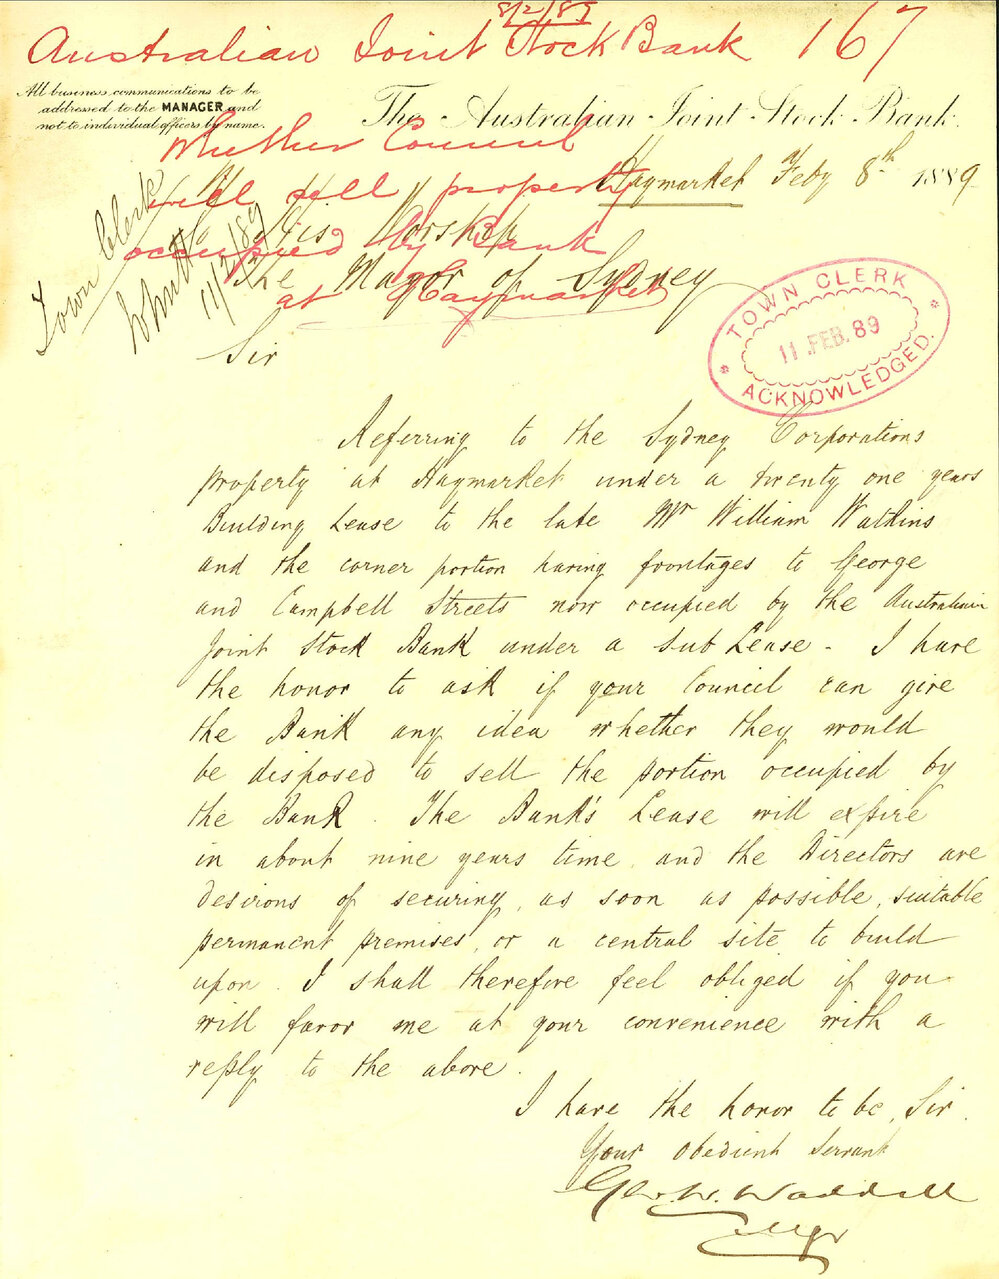 8/2/89
Australian Joint Stock Bank 167
All business communications to be
addressed to the MANAGER and
not to individual officers by name.
The Australian Joint Stock Bank.
Whether Council
will sell property
occupied by Bank
at Haymarket
Haymarket Feby 8th 1889
Town Clerk
11/2/89
His Worship
The Mayor of Sydney
TOWN CLERK
11 FEB. 89
ACKNOWLEDGED.
Sir
Referring to the Sydney Corporations
property at Haymarket under a twenty one years
Building Lease to the late Mr William Watkins
and the corner portion having frontages to George
and Campbell Streets now occupied by the Australian
Joint Stock Bank under a sub Lease. I have
the honor to ask if your Council can give
the Bank any idea whether they would
be disposed to sell the portion occupied by
the Bank. The Bank's Lease will expire
in about nine years time and the Directors are
desirous of securing, as soon as possible, suitable
permanent premises, or a central site to build
upon. I shall therefore feel obliged if you
will favor me at your convenience with a
reply to the above.
I have the honor to be, Sir.
Your obedient Servant
Geo. W. Waddell
Mgr